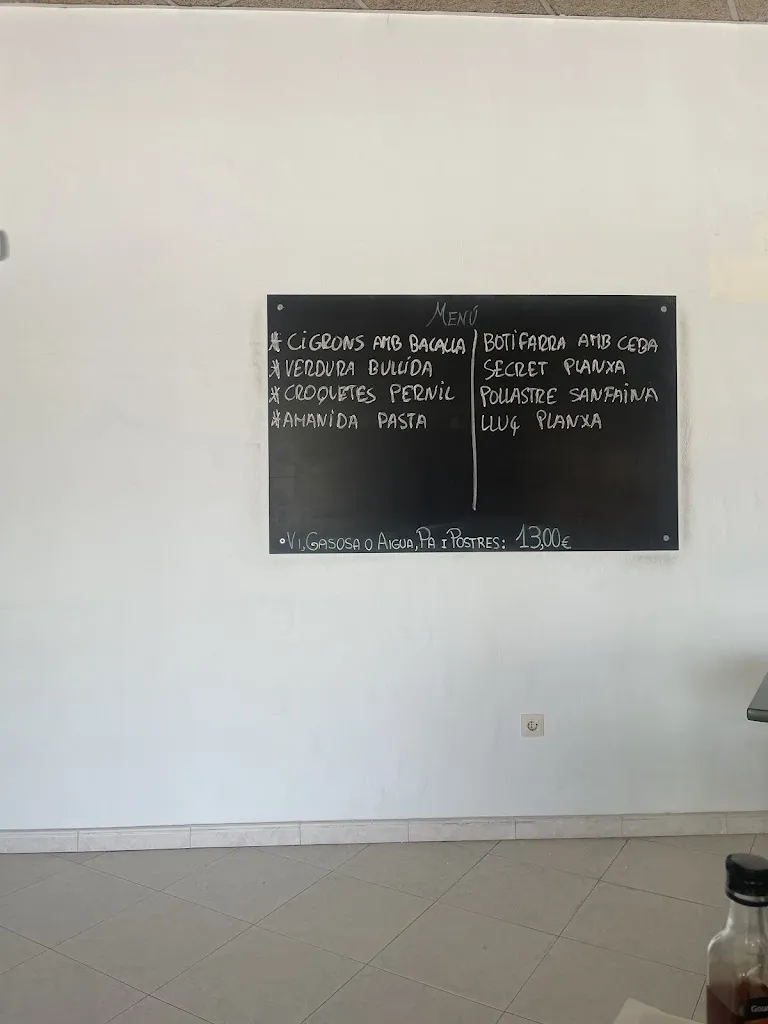 MENÚ
* CIGRONS AMB BACALLA
* VERDURA BULLIDA
* CROQUETES PERNIL
* AMANIDA PASTA
BOTIFARRA AMB CEBA
SECRET PLANXA
POLLASTRE SANFAINA
LLUÇ PLANXA
VI, GASOSA O AIGUA, PA I POSTRES: 13,00€